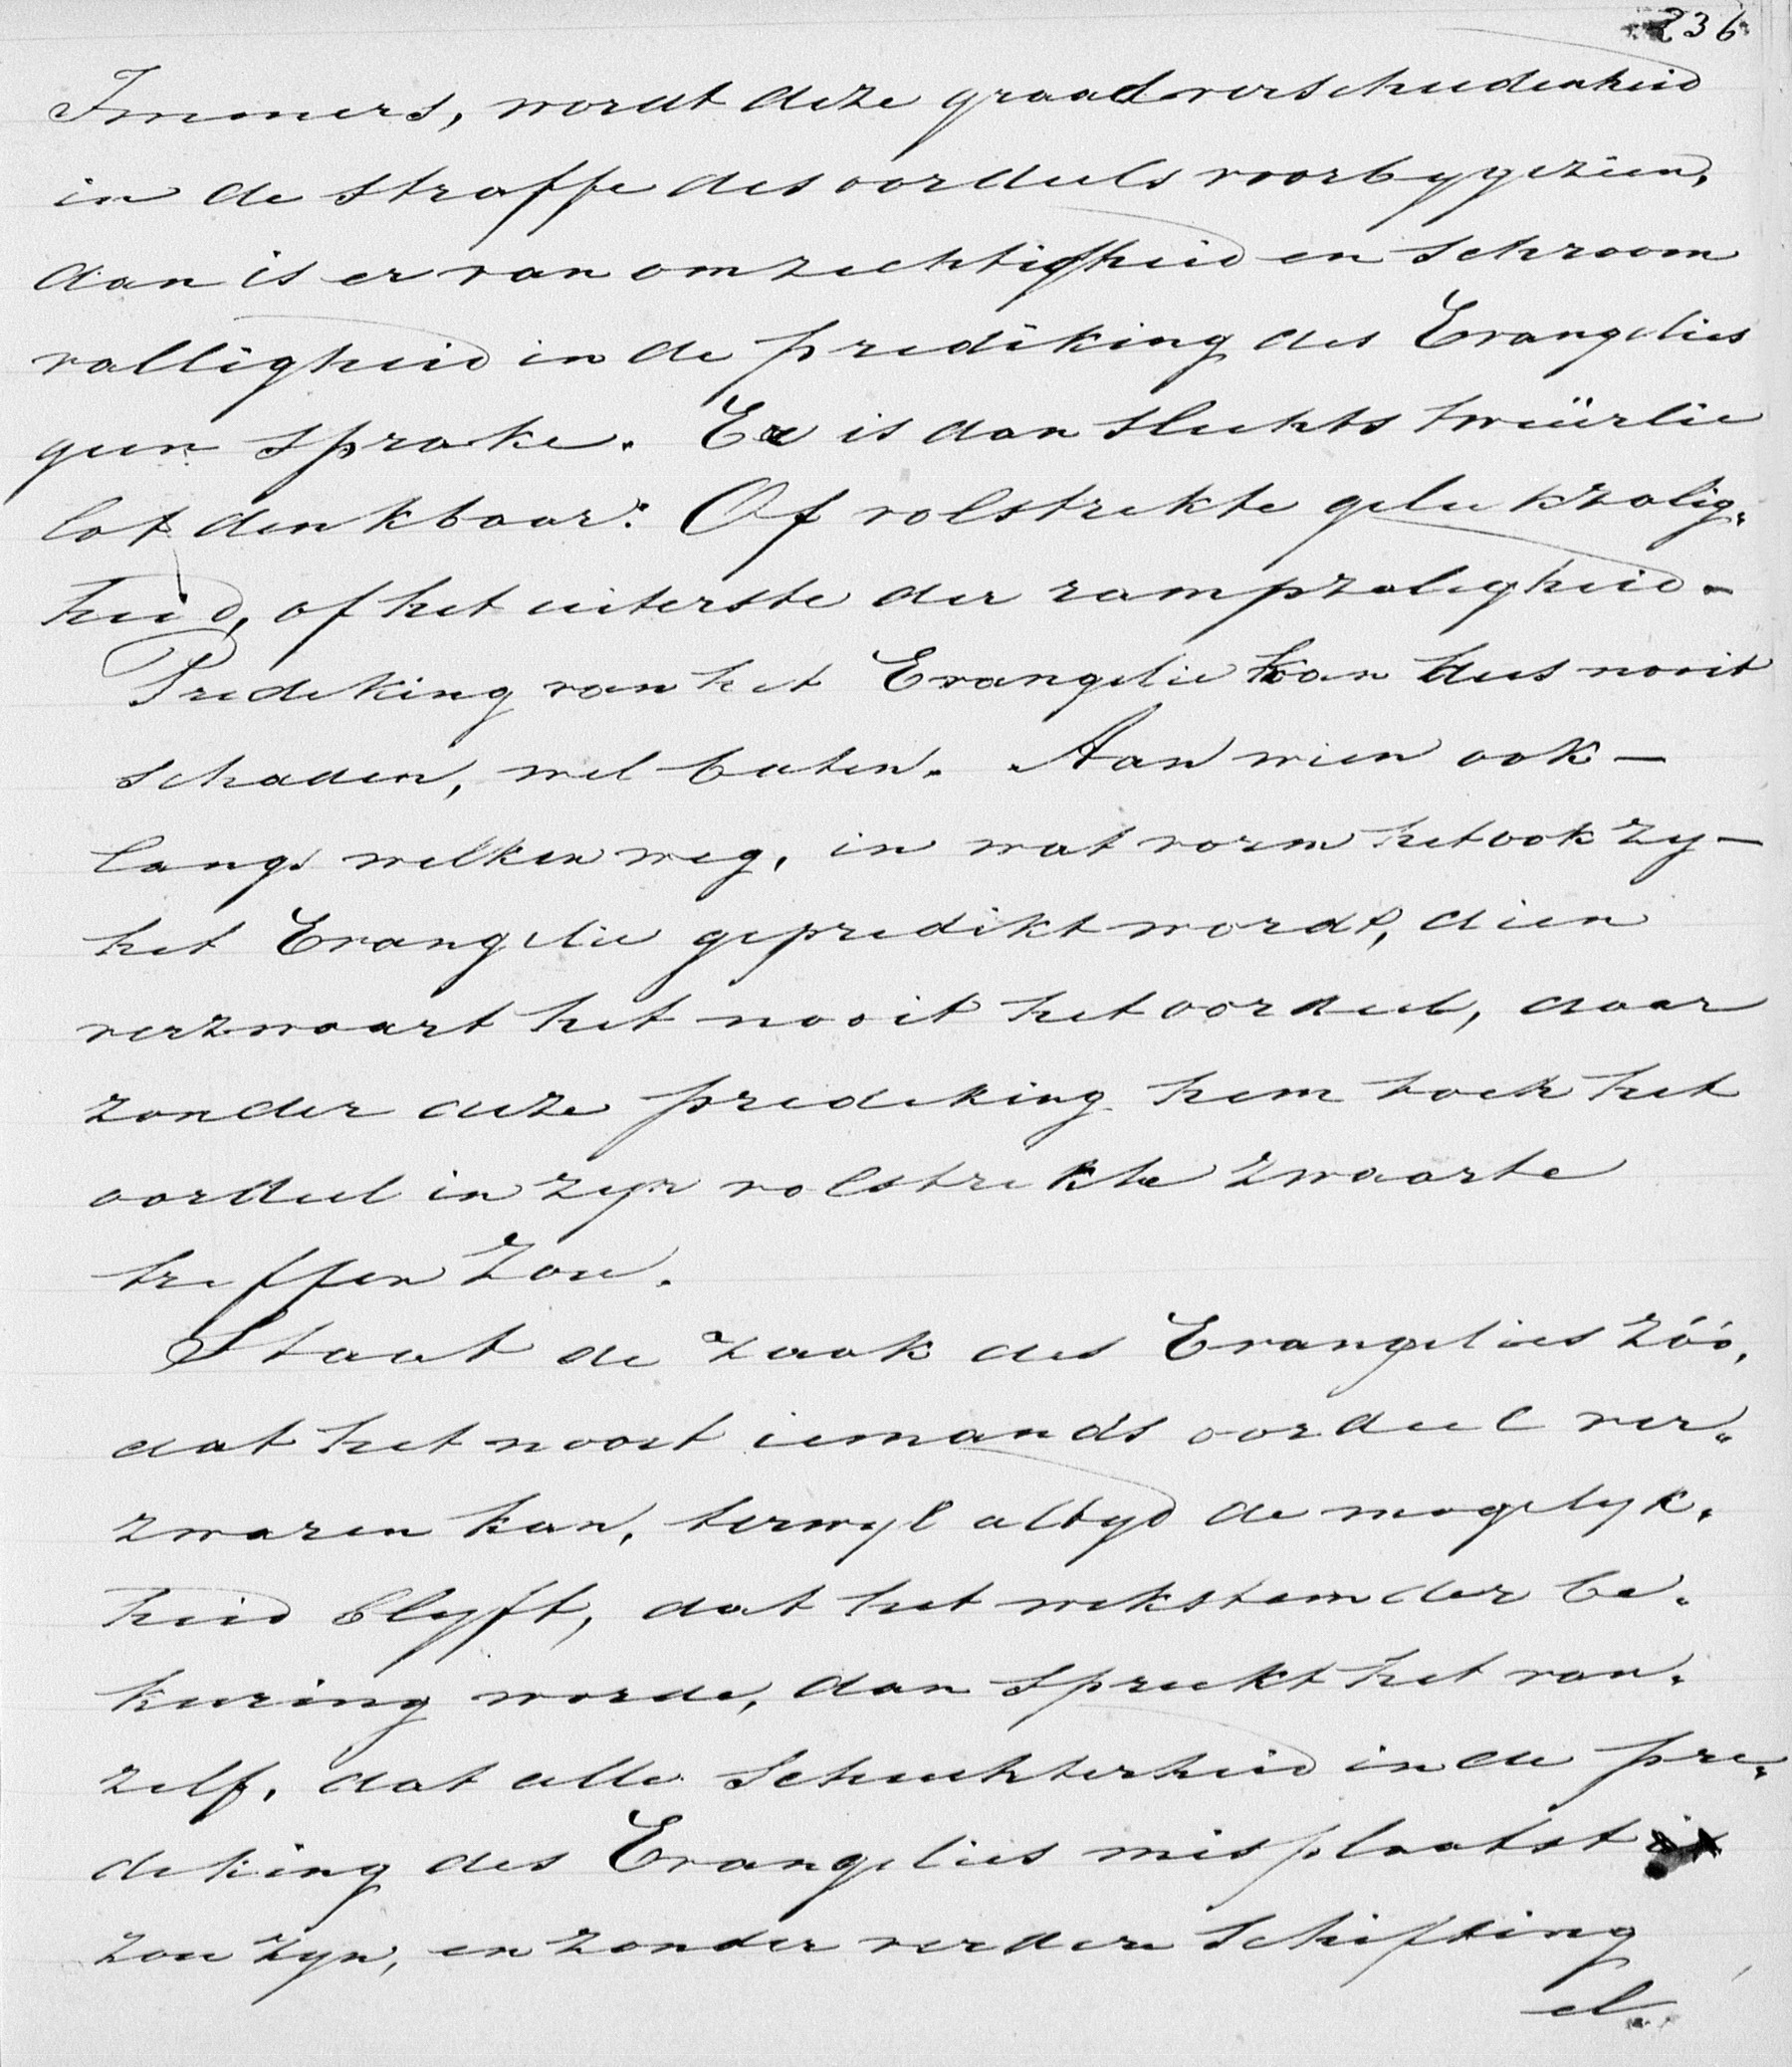 236
Immers, wordt deze graadverscheidenheid
in de straffe des oordeels voorbygezien,
dan is er van omzichtigheid en schroom
valligheid in de prediking des Evangelies
geen sprake. Er is dan slechts tweeërlei
lot denkbaar: Of volstrekte gelukzalig„
heid, of het uiterste der rampzaligheid.
Prediking van het Evangelie kan dus nooit
schaden, wel baten. Aan wien ook –
langs welken weg, in wat vorm het ook zy –
het Evangelie gepredikt wordt, dien
verzwaart het nooit het oordeel, daar
zonder deze prediking hem toch het
oordeel in zyn volstrekte zwaarte
treffen zou.
Staat de zaak des Evangelies zóó,
dat het nooit iemands oordeel ver„
zwaren kan, terwyl altyd de mogelyk„
heid blyft, dat het wekstem der be„
keering worde, dan spreekt het van„
zelf, dat alle schuchterheid in de pre„
diking des Evangelies misplaatst
zou zyn, en zonder verdere schifting
el